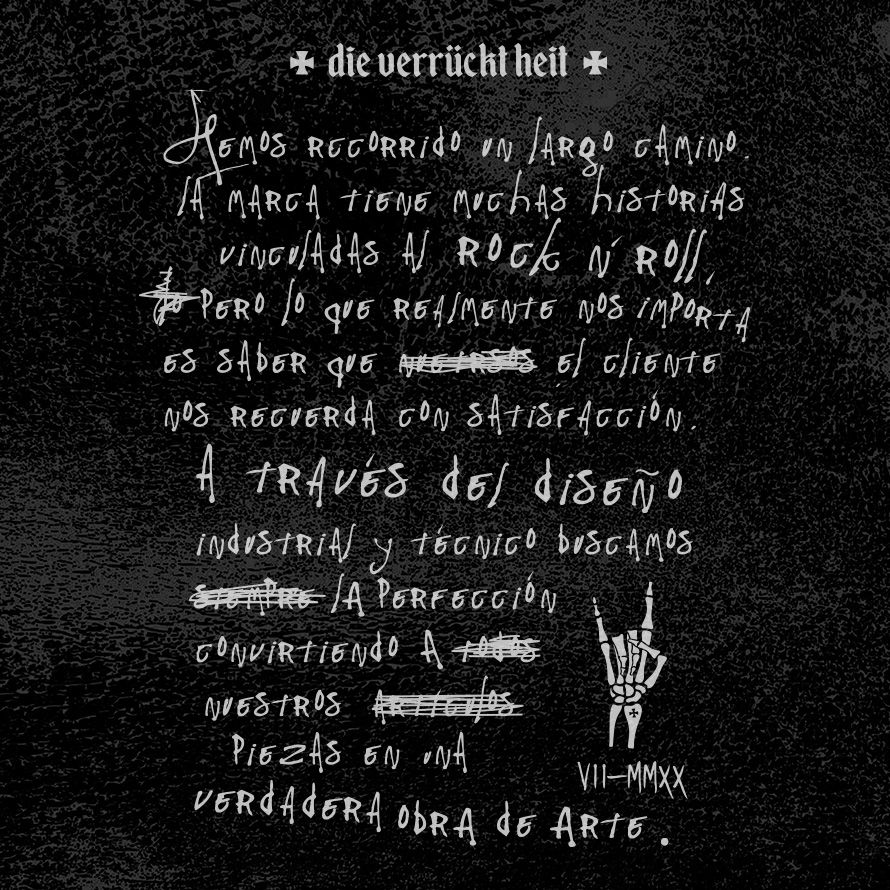 die verrückt heit
Hemos recorrido un largo camino.
la marca tiene muchas historias
vinculadas al rock n' roll,
pero lo que realmente nos importa
es saber que el cliente
nos recuerda con satisfacción.
A través del diseño
industrial y técnico buscamos
siempre la perfección
convirtiendo a todos
nuestros artículos
piezas en una
verdadera obra de arte.
VII-MMXX